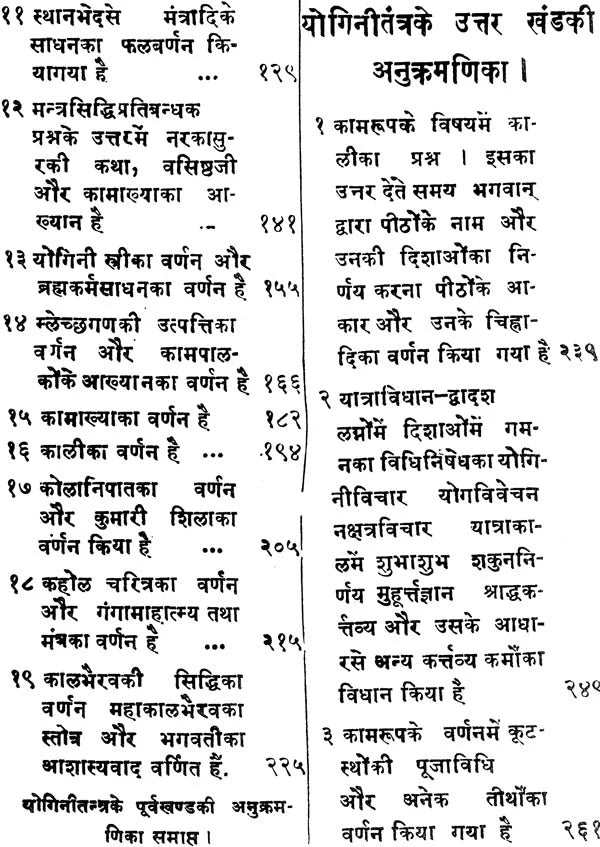 ११ स्थानभेदसे मंत्रादिके
साधनका फलवर्णन कि-
यागया है ... १२९
१२ मन्त्रसिद्धिप्रतिबन्धक
प्रश्नके उत्तरमें नरकासु-
रकी कथा, वसिष्ठजी
और कामाख्याका आ-
ख्यान है .. १४१
१३ योगिनी स्त्रीका वर्णन और
ब्रह्मकर्मसाधनका वर्णन है १५५
१४ म्लेच्छगणकी उत्पत्तिका
वर्गन और कामपाल-
कोंके आख्यानका वर्णन है १६६
१५ कामाख्याका वर्णन है १८२
१६ कालीका वर्णन है ... १९४
१७ कोलानिपातका वर्णन
और कुमारी शिलाका
वर्णन किया है ... २०५
१८ कहोल चरित्रका वर्णन
और गंगामाहात्म्य तथा
मंत्रका वर्णन है ... २१५
१९ कालभैरवकी सिद्धिका
वर्णन महाकालभैरवका
स्तोत्र और भगवतीका
आशास्यवाद वर्णित है. २२५
योगिनीतन्त्रके पूर्वखण्डकी अनुक्रम-
णिका समाप्त।
योगिनीतंत्रके उत्तर खंडकी
अनुक्रमणिका।
१ कामरूपके विषयमें का-
लीका प्रश्न । इसका
उत्तर देते समय भगवान्
द्वारा पीठोंके नाम और
उनकी दिशाओंका नि-
र्णय करना पीठोंके आ-
कार और उनके चिह्ना-
दिका वर्णन किया गया है २३९
२ यात्राविधान-द्वादश
लग्नोंमें दिशाओंमें गम-
नका विधिनिषेधका योगि-
नीविचार योगविवेचन
नक्षत्रविचार यात्राका-
लमें शुभाशुभ शकुननि-
र्णय मुहूर्त्तज्ञान श्राद्धक-
र्त्तव्य और उसके आधा-
रसे अन्य कर्त्तव्य कर्मोंका
विधान किया है २४९
३ कामरूपके वर्णनमें कूट-
स्थोंकी पूजाविधि
और अनेक तीर्थोंका
वर्णन किया गया है २६१